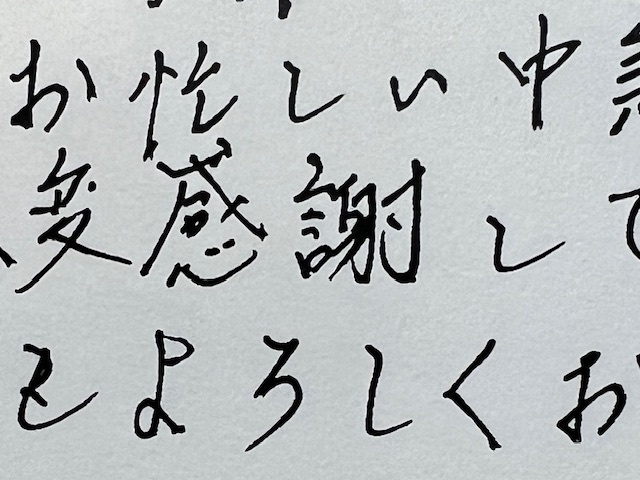 お忙しい中
変感謝して
もよろしくお